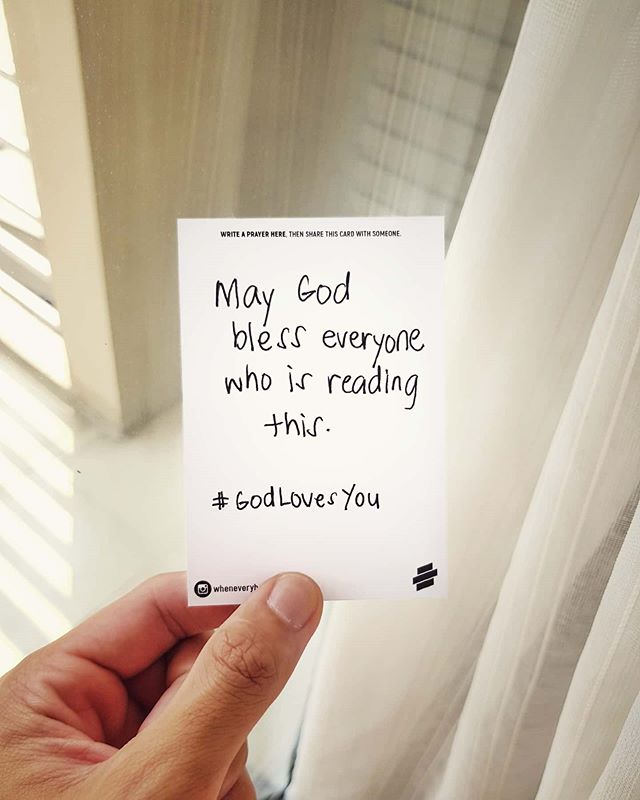 WRITE A PRAYER HERE, THEN SHARE THIS CARD WITH SOMEONE.
May God
bless everyone
who is reading
this.
#GodLovesYou